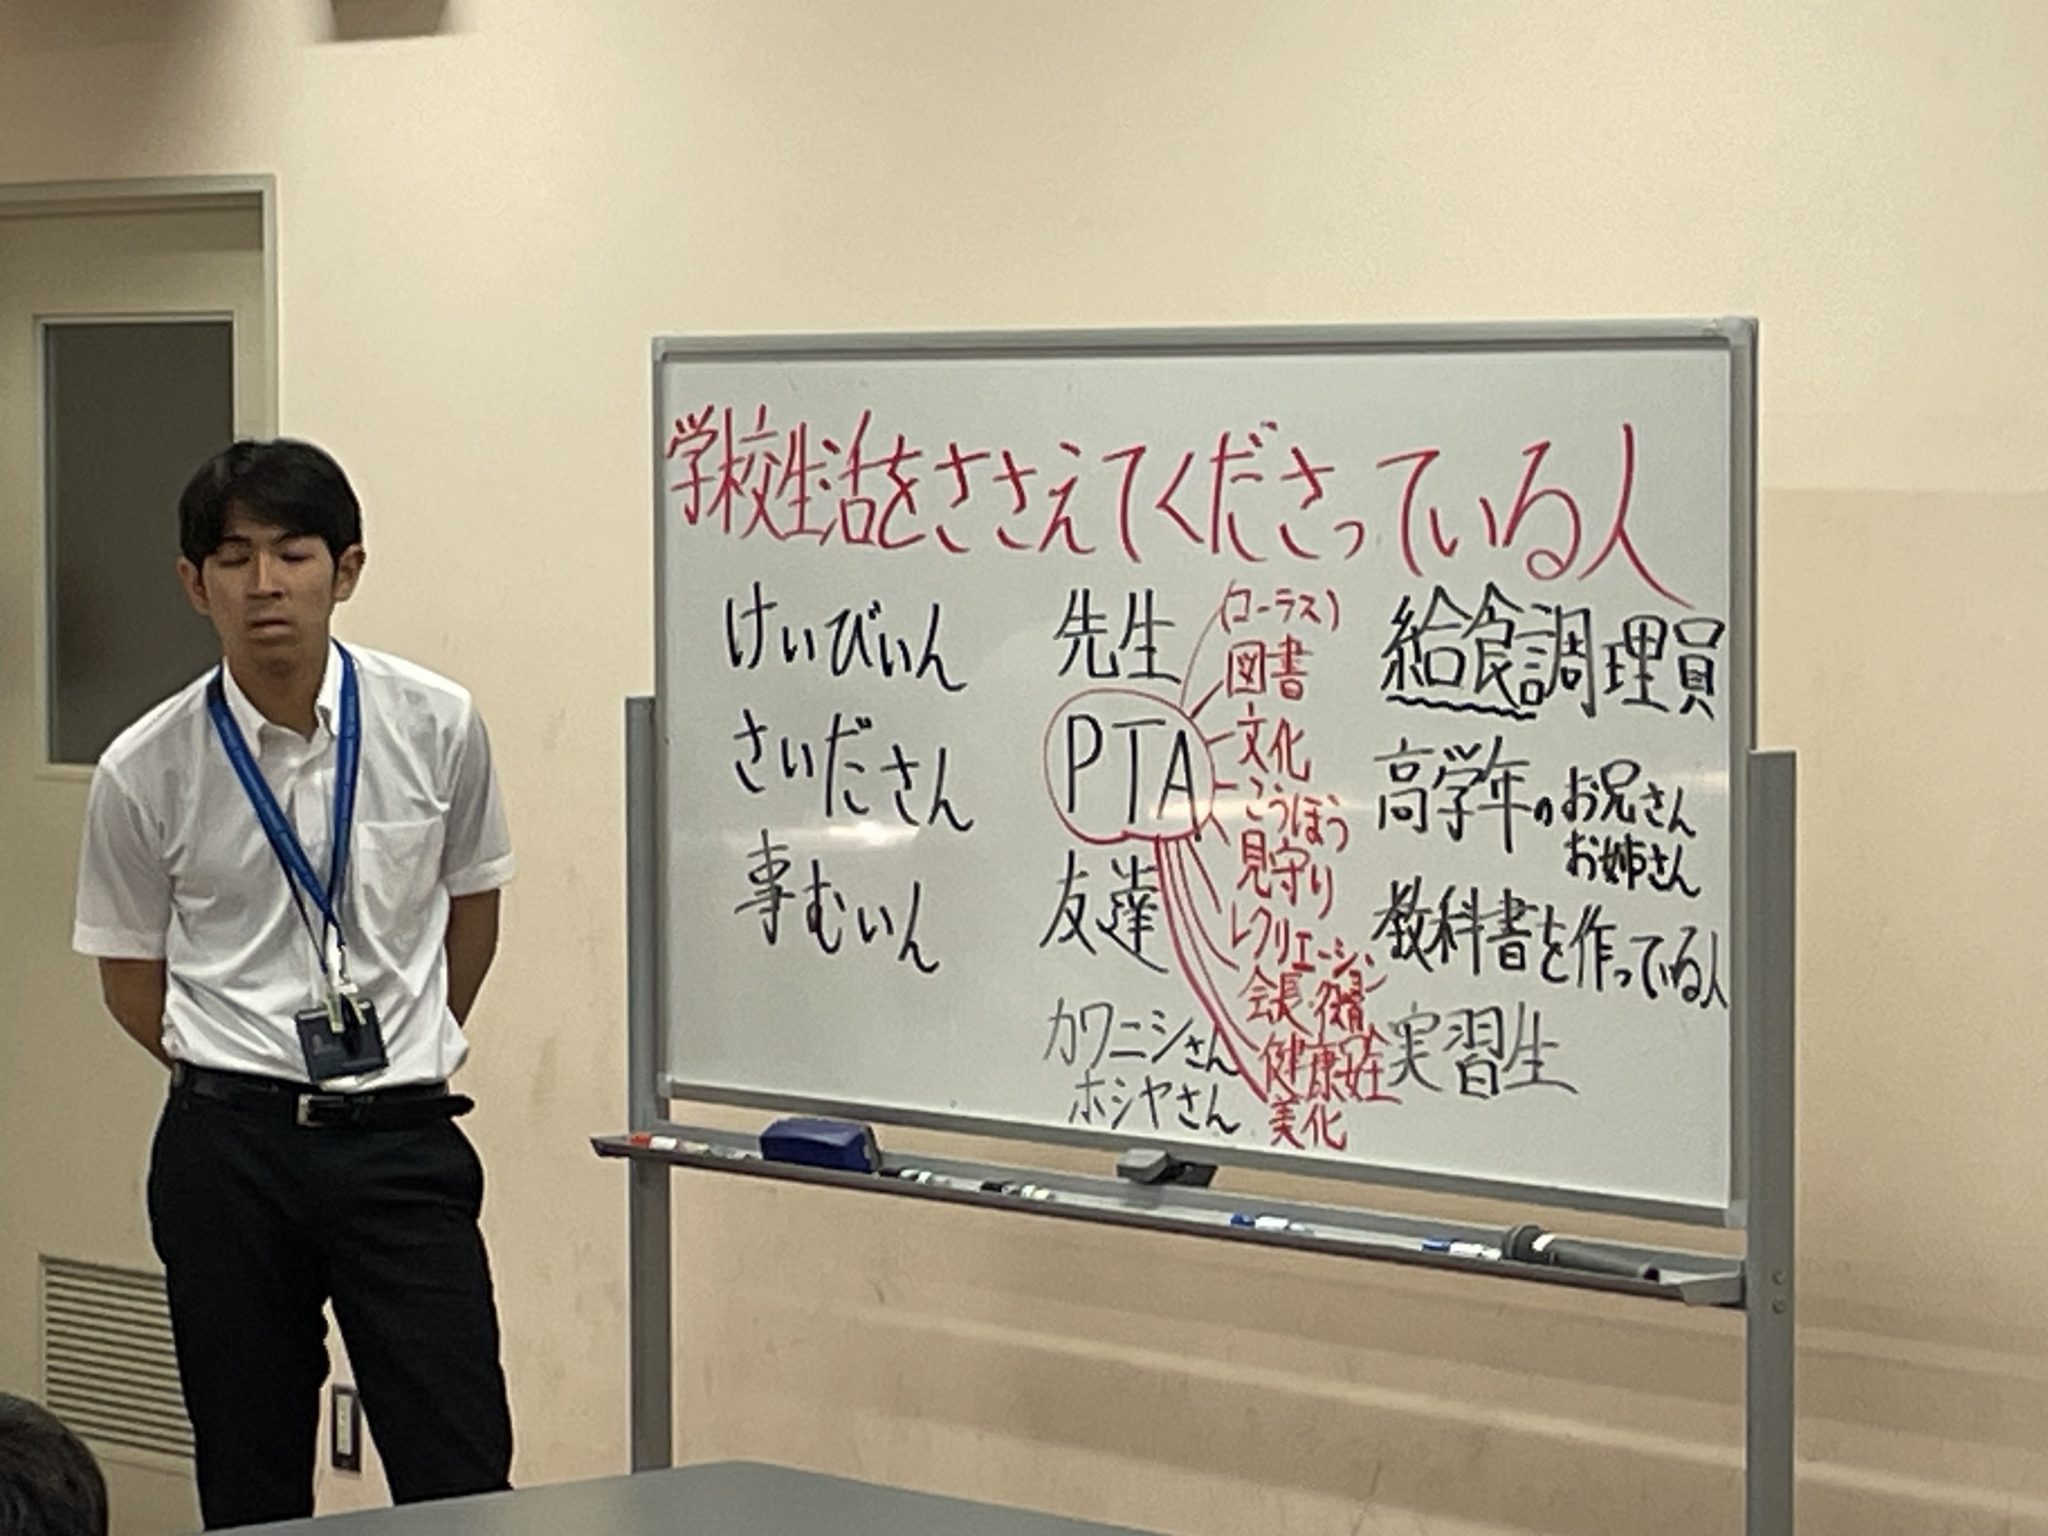 学校生活をささえてくださっている人
けいびいん
さいださん
事むいん
先生
PTA
友達
カワニシさん
ホシヤさん
(コーラス)
図書
文化
こうほう
見守り
レクリエーション
会長・役員
健康安全
美化
給食調理員
高学年のお兄さん
お姉さん
教科書を作っている人
実習生